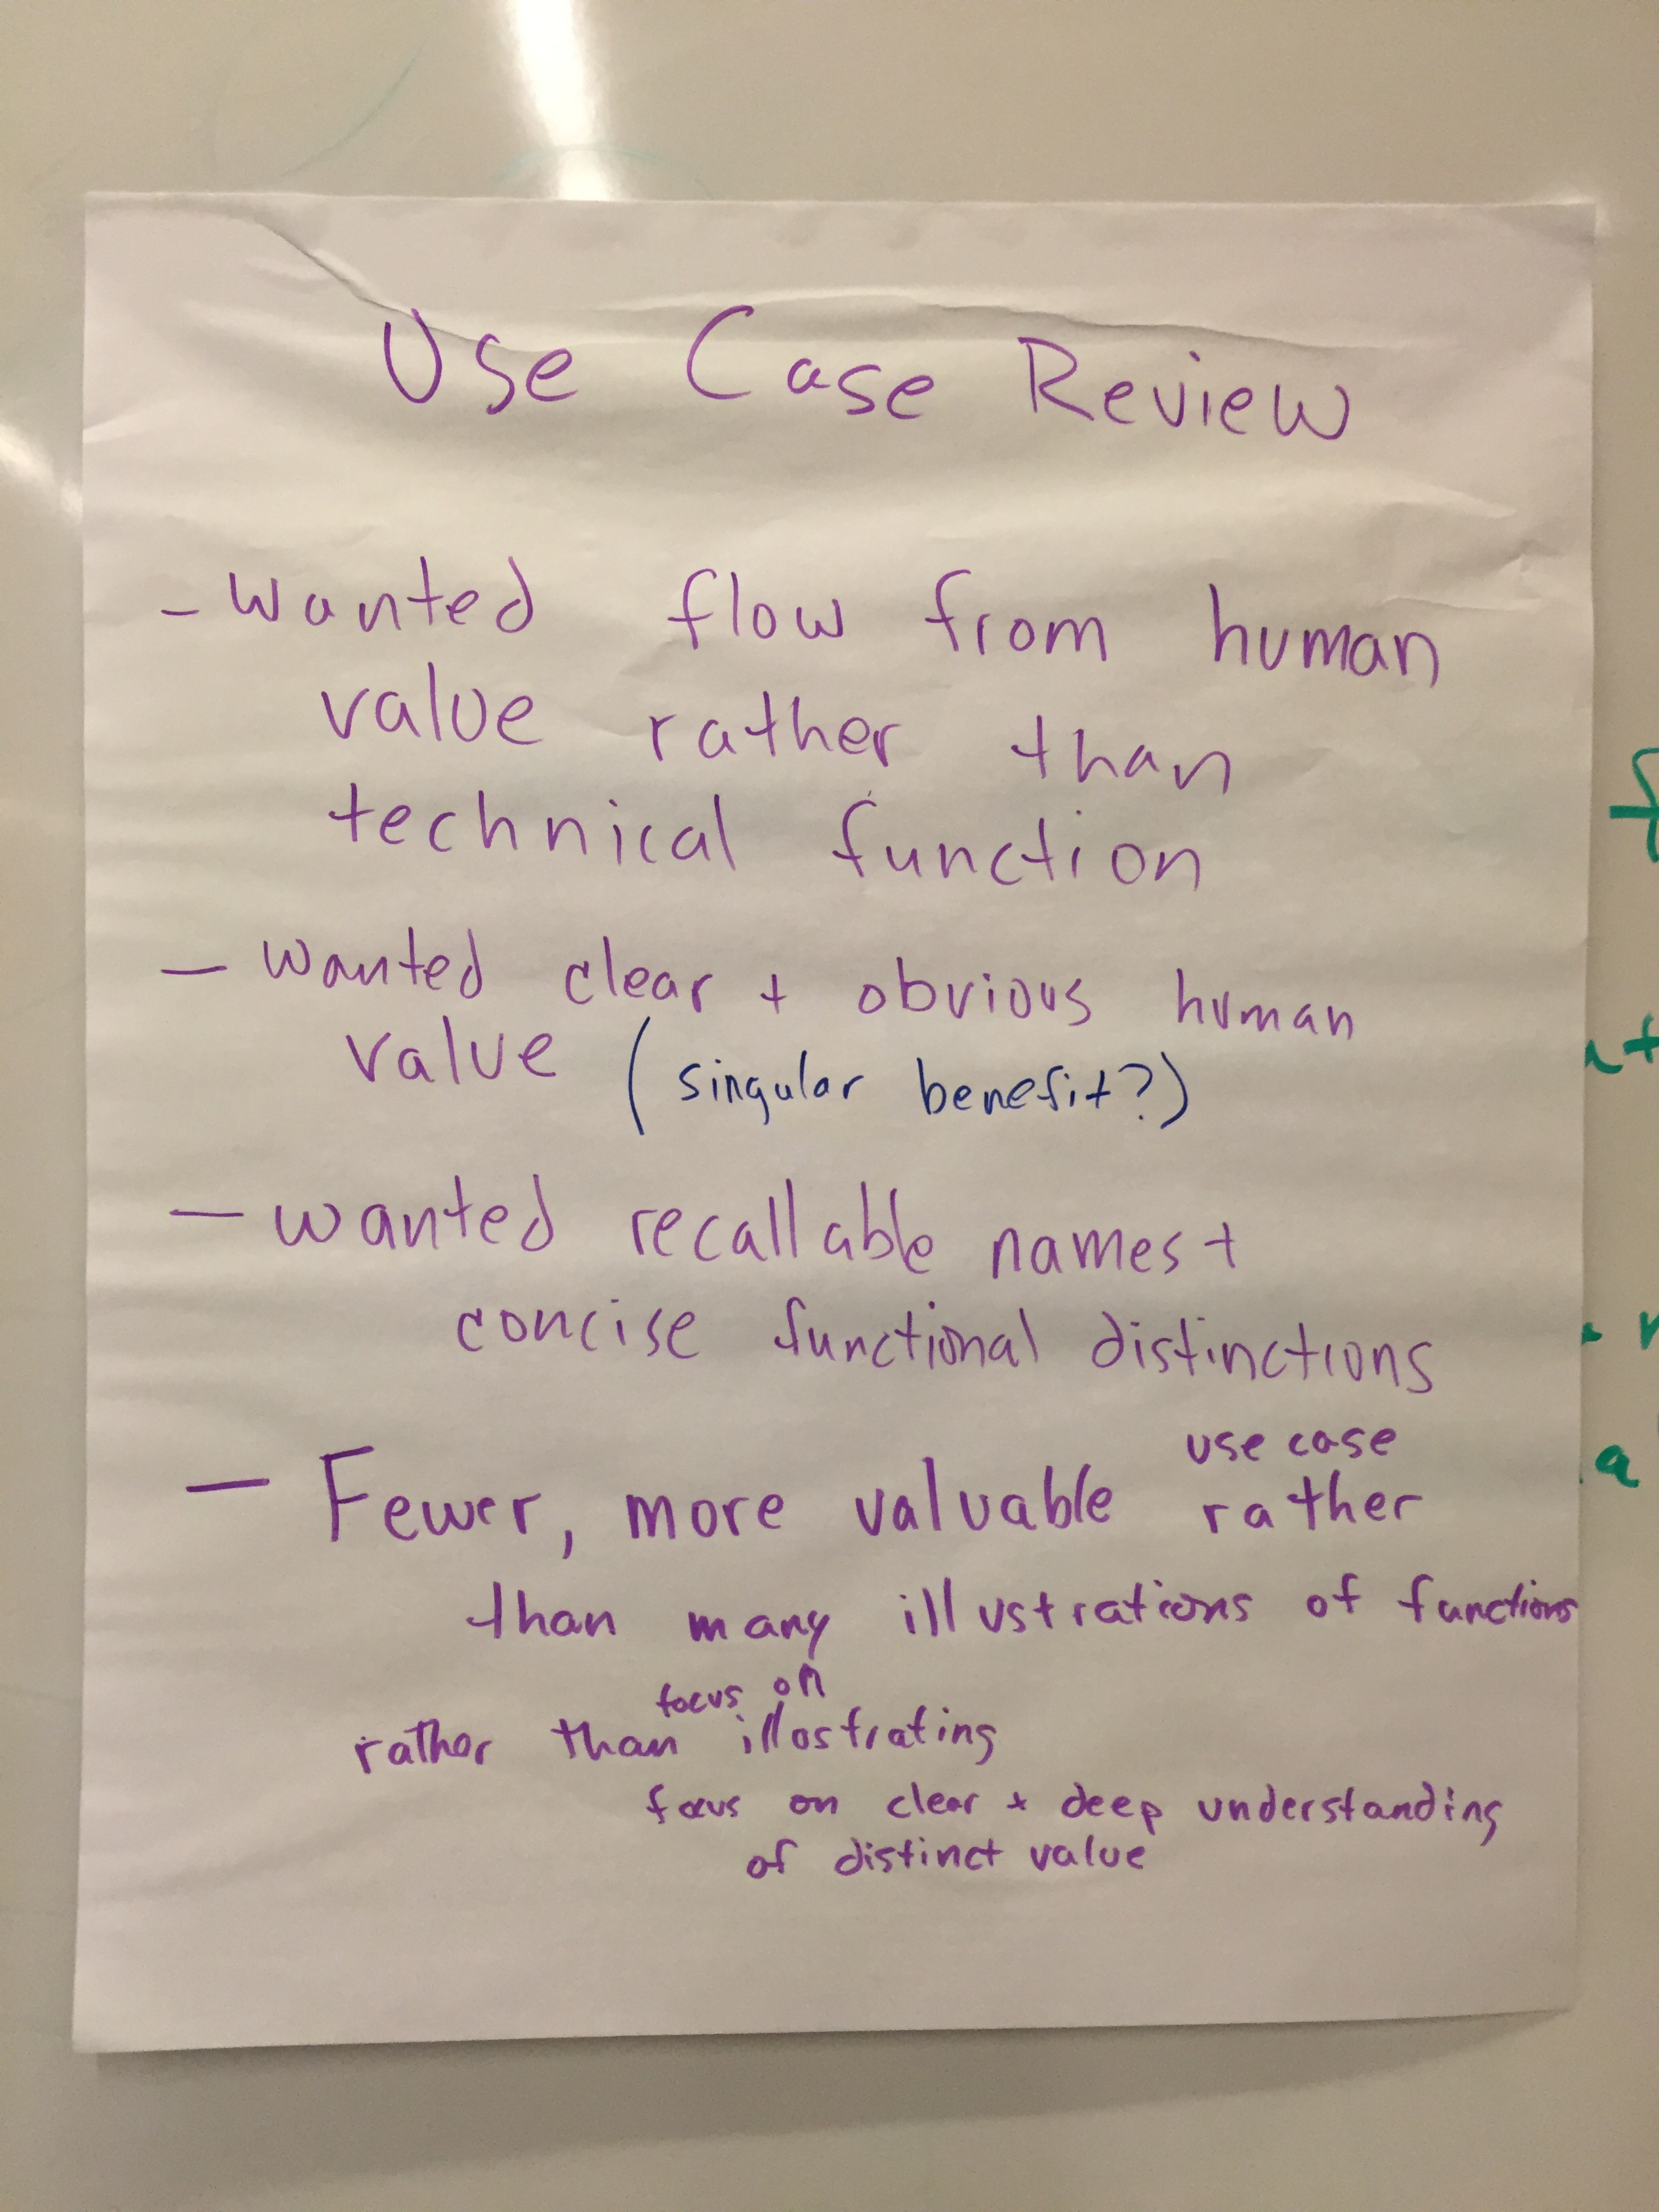 Use Case Review
- wanted flow from human
value rather than
technical function
- wanted clear + obvious human
value (singular benefit?)
- wanted recallable names +
concise functional distinctions
use case
- Fewer, more valuable rather
than many illustrations of functions
focus on
rather than illustrating
focus on clear + deep understanding
of distinct value